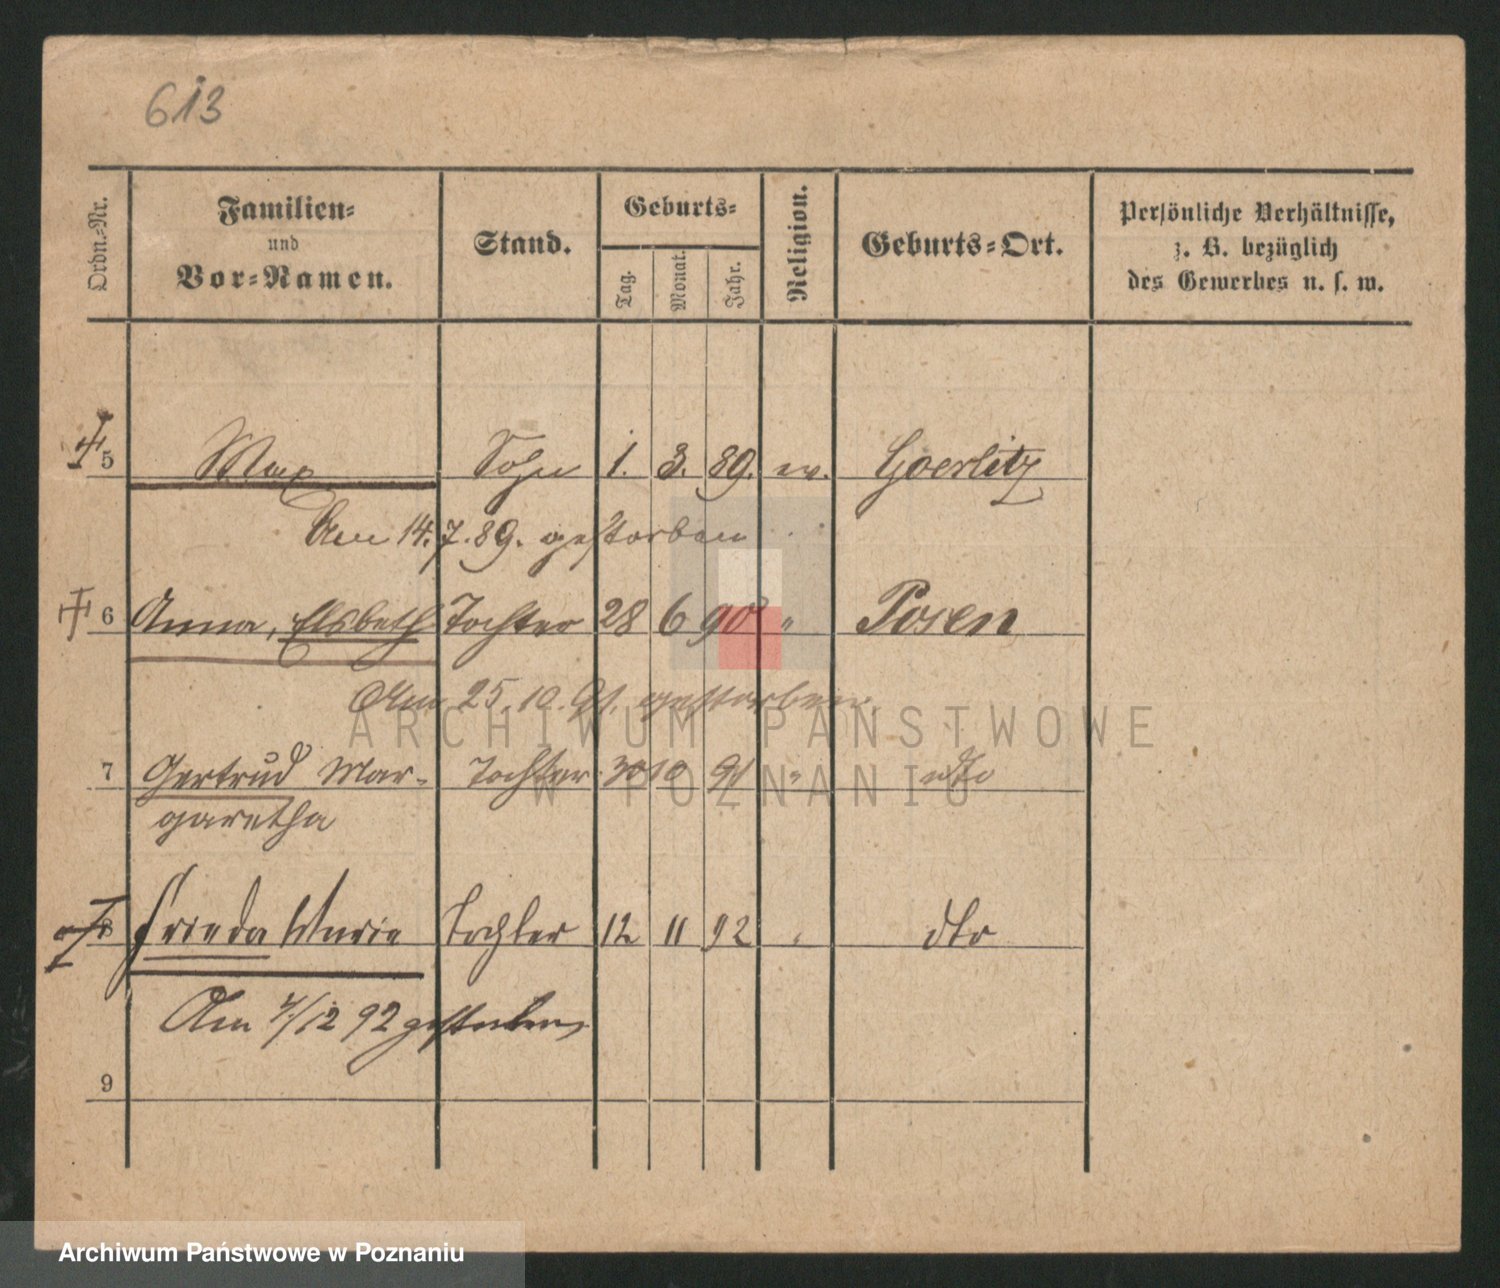 613
Ordn.-Nr.
Familien-
und
Vor-Namen.
Stand.
Geburts-
Tag.
Monat.
Jahr.
Religion.
Geburts-Ort.
Persönliche Verhältnisse,
z. B. bezüglich
des Gewerbes u. s. w.
5 Max Sohn 1. 3. 89. ev. Goerlitz
Am 14.7.89. gestorben
6 Anna, Elsbeth Tochter 28 6 90 " Posen
Am 25.10.91. gestorben.
7 Gertrud Mar- Tochter 30 10 91 " dto
garetha
8 Frieda Marie Tochter 12 11 92 " dto
Am 4/12 92 gestorben
9
ARCHIWUM PAŃSTWOWE
W POZNANIU
Archiwum Państwowe w Poznaniu